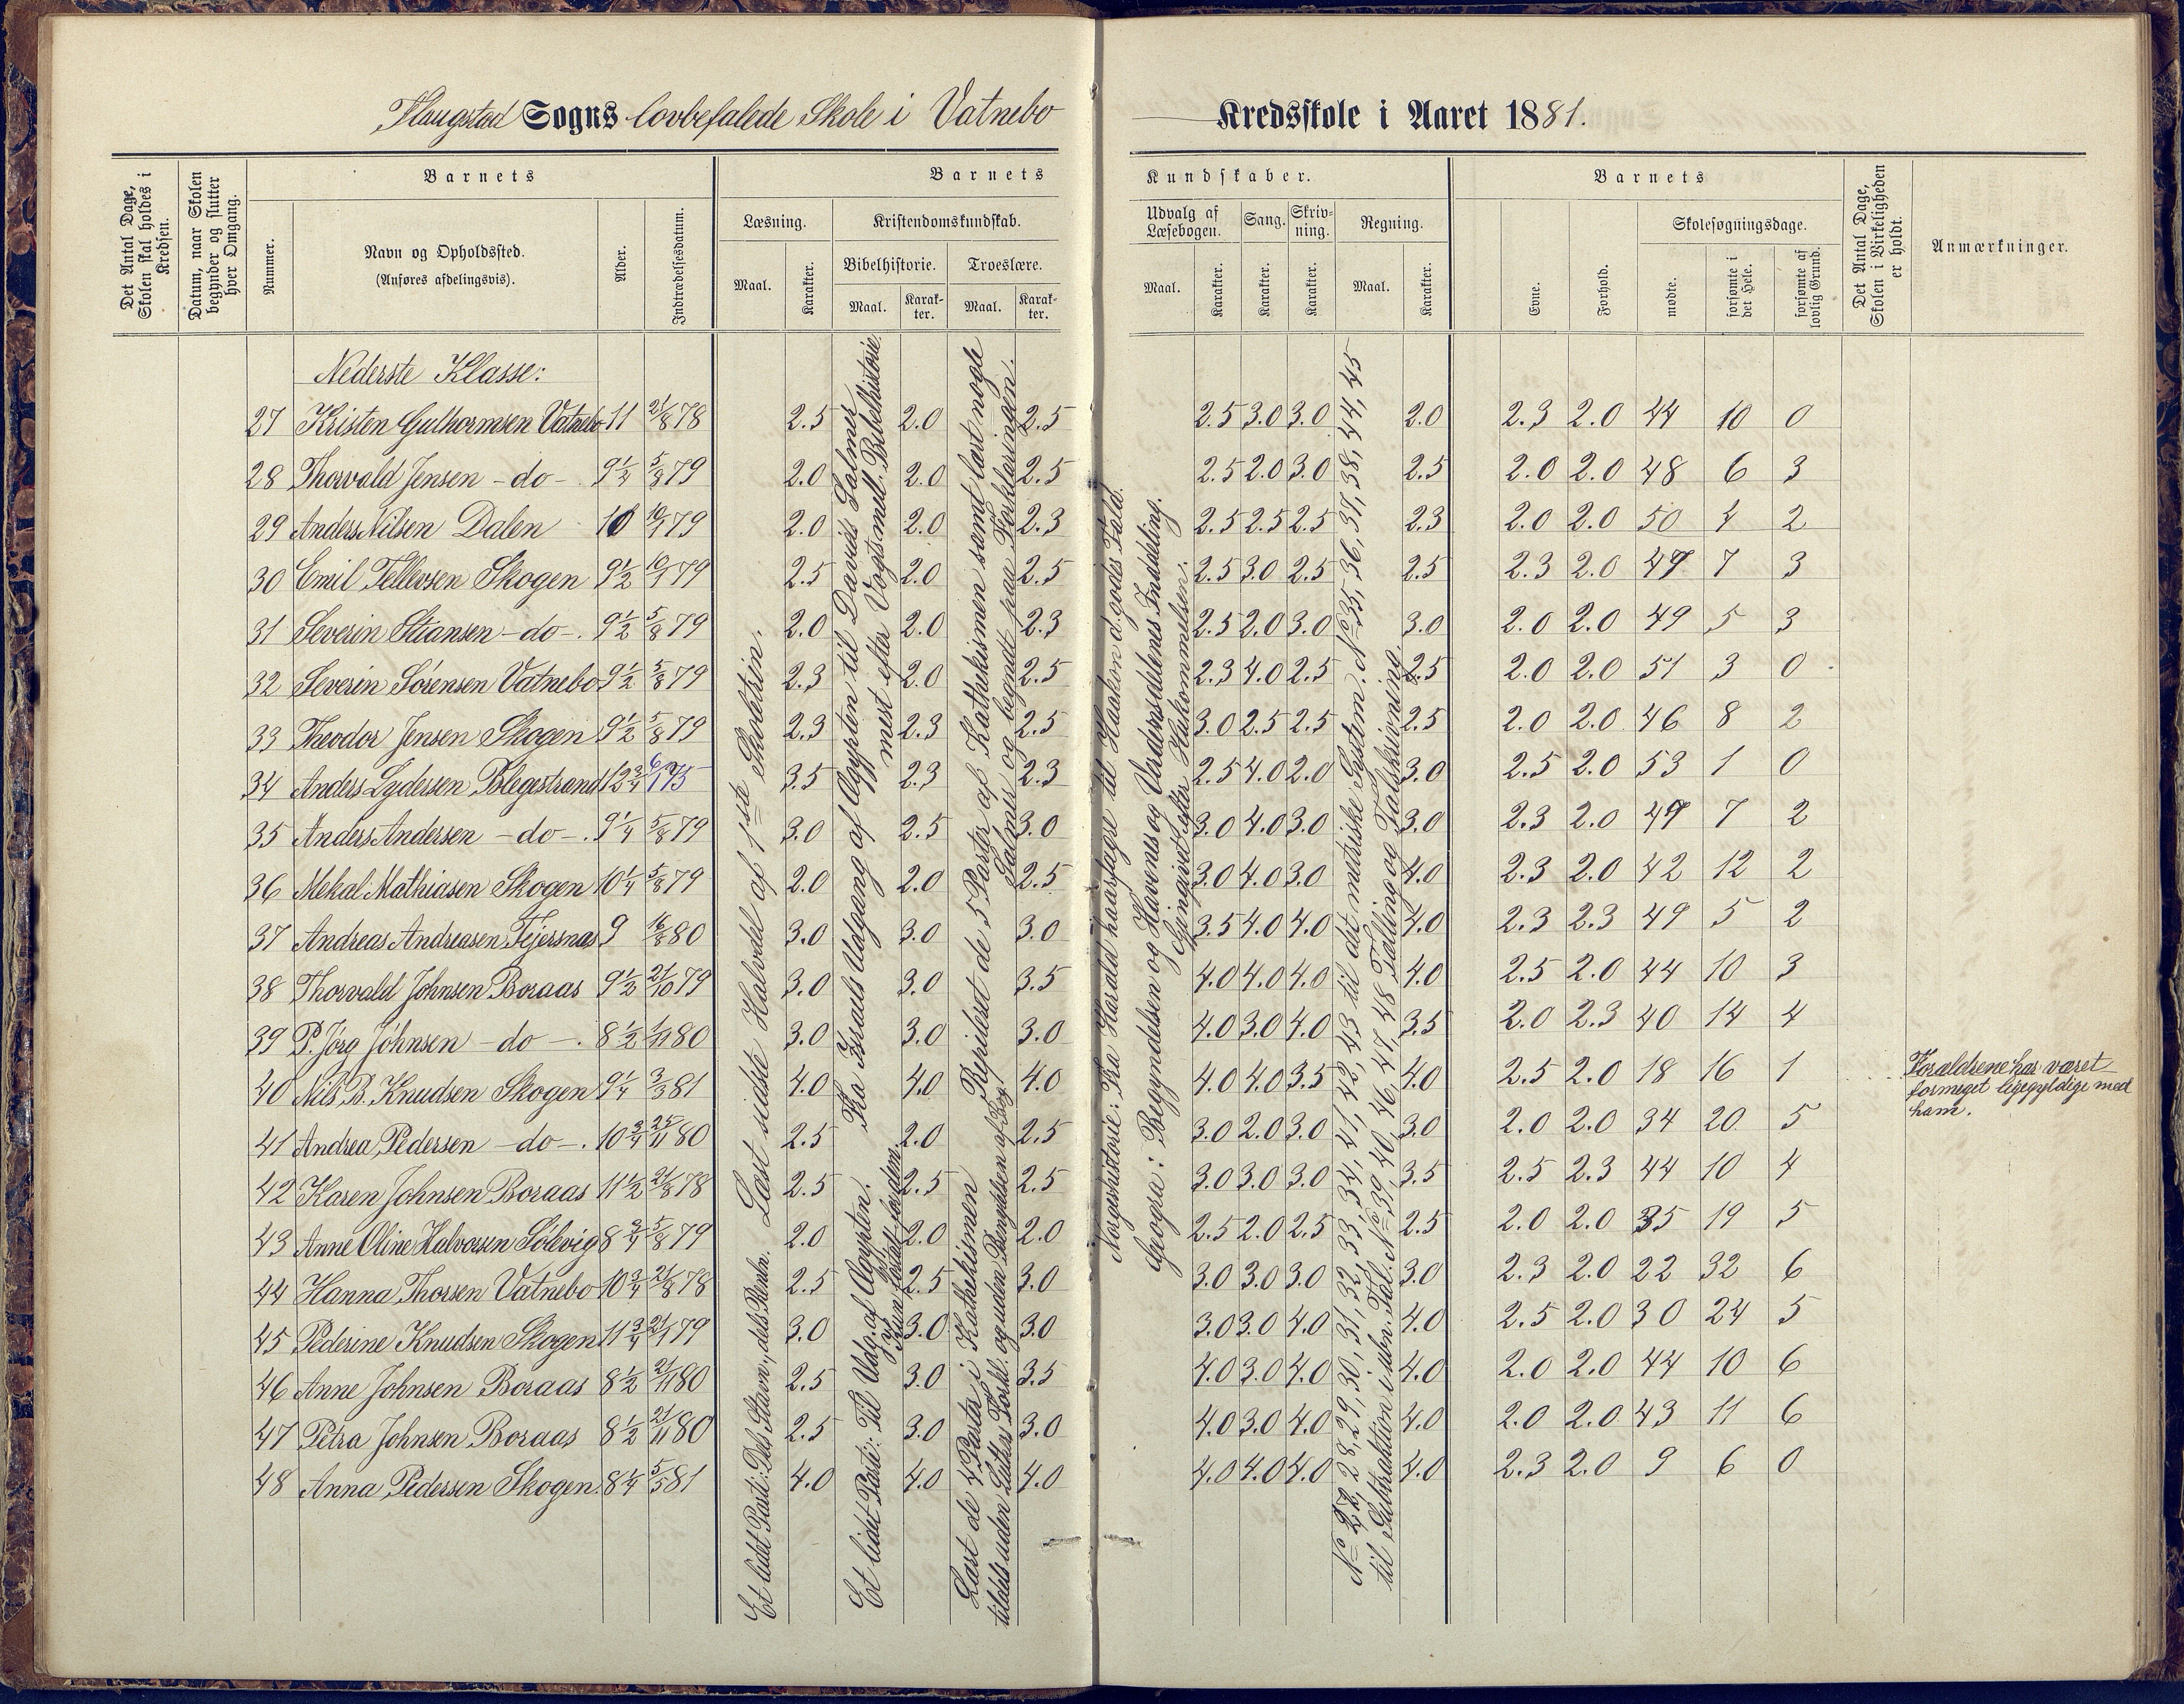 Flaugstad Sogns lovbefalede Skole i Vatnebo Kredsskole i Aaret 1881.
Det Antal Dage, Skolen skal holdes i Kredsen.
Datum, naar Skolen begynder og slutter hver Omgang.
Barnets
Nummer.
Navn og Opholdssted.
(Anføres afdelingsvis).
Alder.
Indtrædelsesdatum.
Barnets Kundskaber.
Læsning.
Maal. Karakter.
Kristendomskundskab.
Bibelhistorie. Troeslære.
Maal. Karakter. Maal. Karakter.
Udvalg af Læsebogen. Sang. Skrivning. Regning.
Maal. Karakter. Karakter. Karakter. Maal. Karakter.
Barnets
Evne. Forhold.
Skolesøgningsdage.
mødte. forsømte i det Hele. forsømte af lovlig Grund.
Det Antal Dage, Skolen i Virkeligheden er holdt.
Anmærkninger.
Nederste Klasse:
27 Kristen Guthormsen Vatnebo 11 21/8 78 2.5 2.0 2.5 2.5 3.0 3.0 2.0 2.3 2.0 44 10 0
28 Thorvald Jensen - do - 9 1/2 5/8 79 2.0 2.0 2.5 2.5 2.0 3.0 2.5 2.0 2.0 48 6 3
29 Anders Nilsen Dalen 10 10/1 79 2.0 2.0 2.3 2.5 2.5 2.5 2.3 2.0 2.0 50 4 2
30 Emil Tellevsen Skogen 9 1/2 10/1 79 2.5 2.0 2.5 2.5 3.0 2.5 2.5 2.3 2.0 47 7 3
31 Severin Stiansen - do -. 9 1/2 5/8 79 2.0 2.0 2.3 2.5 2.0 3.0 3.0 2.0 2.0 49 5 3
32 Severin Sörensen Vatnebo 9 1/2 5/8 79 2.3 2.0 2.5 2.3 4.0 2.5 2.5 2.0 2.0 51 3 0
33 Theodor Jensen Skogen 9 1/2 5/8 79 2.3 2.3 2.5 3.0 2.5 2.5 2.5 2.0 2.0 46 8 2
34 Anders Lydersen Blegestrand 12 3/4 6/1 75 3.5 2.3 2.3 2.5 4.0 2.0 3.0 2.5 2.0 53 1 0
35 Anders Andersen - do -. 9 1/4 5/8 79 3.0 2.5 3.0 3.0 4.0 3.0 3.0 2.3 2.0 47 7 2
36 Mekal Mathiasen Skogen 10 1/4 5/8 79 2.0 2.0 2.5 3.0 4.0 3.0 4.0 2.3 2.0 42 12 2
37 Andreas Andreasen Tejersnæs 9 16/8 80 3.0 3.0 3.0 3.5 4.0 4.0 4.0 2.3 2.3 49 5 2
38 Thorvald Johnsen Boraas 9 1/2 21/10 79 3.0 3.0 3.5 4.0 4.0 4.0 4.0 2.5 2.0 44 10 3
39 P. Jörg Jóhnsen - do -. 8 1/2 1/11 80 3.0 3.0 3.0 4.0 3.0 4.0 3.5 2.0 2.3 40 14 4
40 Nils B. Knudsen Skogen 9 1/4 3/3 81 4.0 4.0 4.0 4.0 4.0 3.5 4.0 2.5 2.0 18 16 1 Forældrene har været
formeget ligegyldige med
ham.
41 Andrea Pedersen - do -. 10 3/4 25/11 80 2.5 2.0 2.5 3.0 2.0 3.0 3.0 2.0 2.0 34 20 5
42 Karen Johnsen Boraas 11 1/2 21/8 78 2.5 2.5 2.5 3.0 3.0 3.0 3.5 2.5 2.3 44 10 4
43 Anne Oline Halvorsen Sólevig 8 3/4 5/8 79 2.0 2.0 2.0 2.5 2.0 2.5 2.5 2.0 2.0 35 19 5
44 Hanna Thorsen Vatnebo 10 3/4 21/8 78 2.5 2.5 3.0 3.0 3.0 3.0 3.0 2.3 2.0 22 32 6
45 Pederine Knudsen Skogen 11 3/4 21/1 79 3.0 3.0 3.0 3.0 3.0 4.0 4.0 2.5 2.0 30 24 5
46 Anne Johnsen Boraas 8 1/2 21/11 80 2.5 3.0 3.5 4.0 3.0 4.0 4.0 2.0 2.0 44 10 6
47 Petra Johnsen Boraas 8 1/2 21/11 80 2.5 3.0 3.0 4.0 3.0 4.0 4.0 2.0 2.0 43 11 6
48 Anna Pedersen Skogen 8 1/4 5/5 81 4.0 4.0 4.0 4.0 4.0 4.0 4.0 2.3 2.0 9 6 0
Et lidet Parti: Dels Stavn., dels Rinbr. Læst sidste Halvdel af 1ste Skoletrin.
Fra Israels Udgang af Ægypten til Davids Salmer
mest efter Vogts mell. Bibelhistorie.
Et lidet Parti: Til Udg. af Ægypten.
Kun fortalt for dem
Repetert de 5 Parter af Kathekismen samt læst nogle
Salmer og begyndt paa Forklaringen.
Læst de 4 Parta i Kathekismen
tildels uden Luthers Forkl. og uden Benyttelsen af Bog
Norgeshistorie: Fra Harald haarfagre til Haakon d. godes Fald.
Geografi: Begyndelsen og Havenes og Verdensdelenes Inddeling.
Gjengivet efter Hukommelsen.
No 27, 28, 29, 30, 31, 32, 33, 34, 41, 42, 43 til det metriske System. No 35, 36, 37, 38, 44, 45
til Subtraktion i ubn. Tal. No 39, 40, 46, 47, 48 Tælling og Talskrivning.